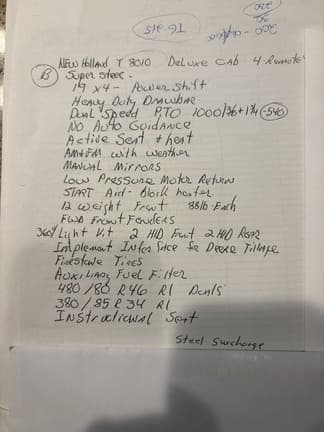 TG 215
200 - 
30
220
New Holland T 8010 Deluxe CAB 4 Remotes
B Super Steer.
19 x4 - Power Shift
Heavy Duty Drawbar
Dual Speed PTO 1000 1 3/8 + 1 3/4 -540
NO Auto Guidance
Active Seat + heat
AM+FM with weather
MANUAL Mirrors
Low Pressure Motor Return
START Aid - Block heater
12 weight Front 88lb Each
FWD Front Fenders
360° Light Kit 2 HID Frnt 2 HID Rear
Implement Interface for Deere Tillage
Firestone Tires
Auxiliary Fuel Filter
480/80 R46 R1 Duals
380/85 R34 R1
Instructional Seat
Steel Surcharge